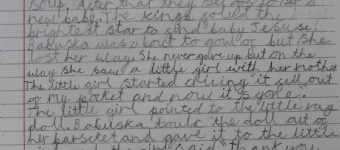 soup. After that they set off to see a
new baby. The kings follow the
brightest star to find baby Jesus.
Babuska was about to go in or but she
lost her way. She never gave up but on the
way she saw a little girl with her mother
The little girl started crieing "it fell out
of my pocket and now it's gone".
The little girl pointed to the little rag
doll. Babuska took the doll out of
her barscket and gave it to the little
said thank you